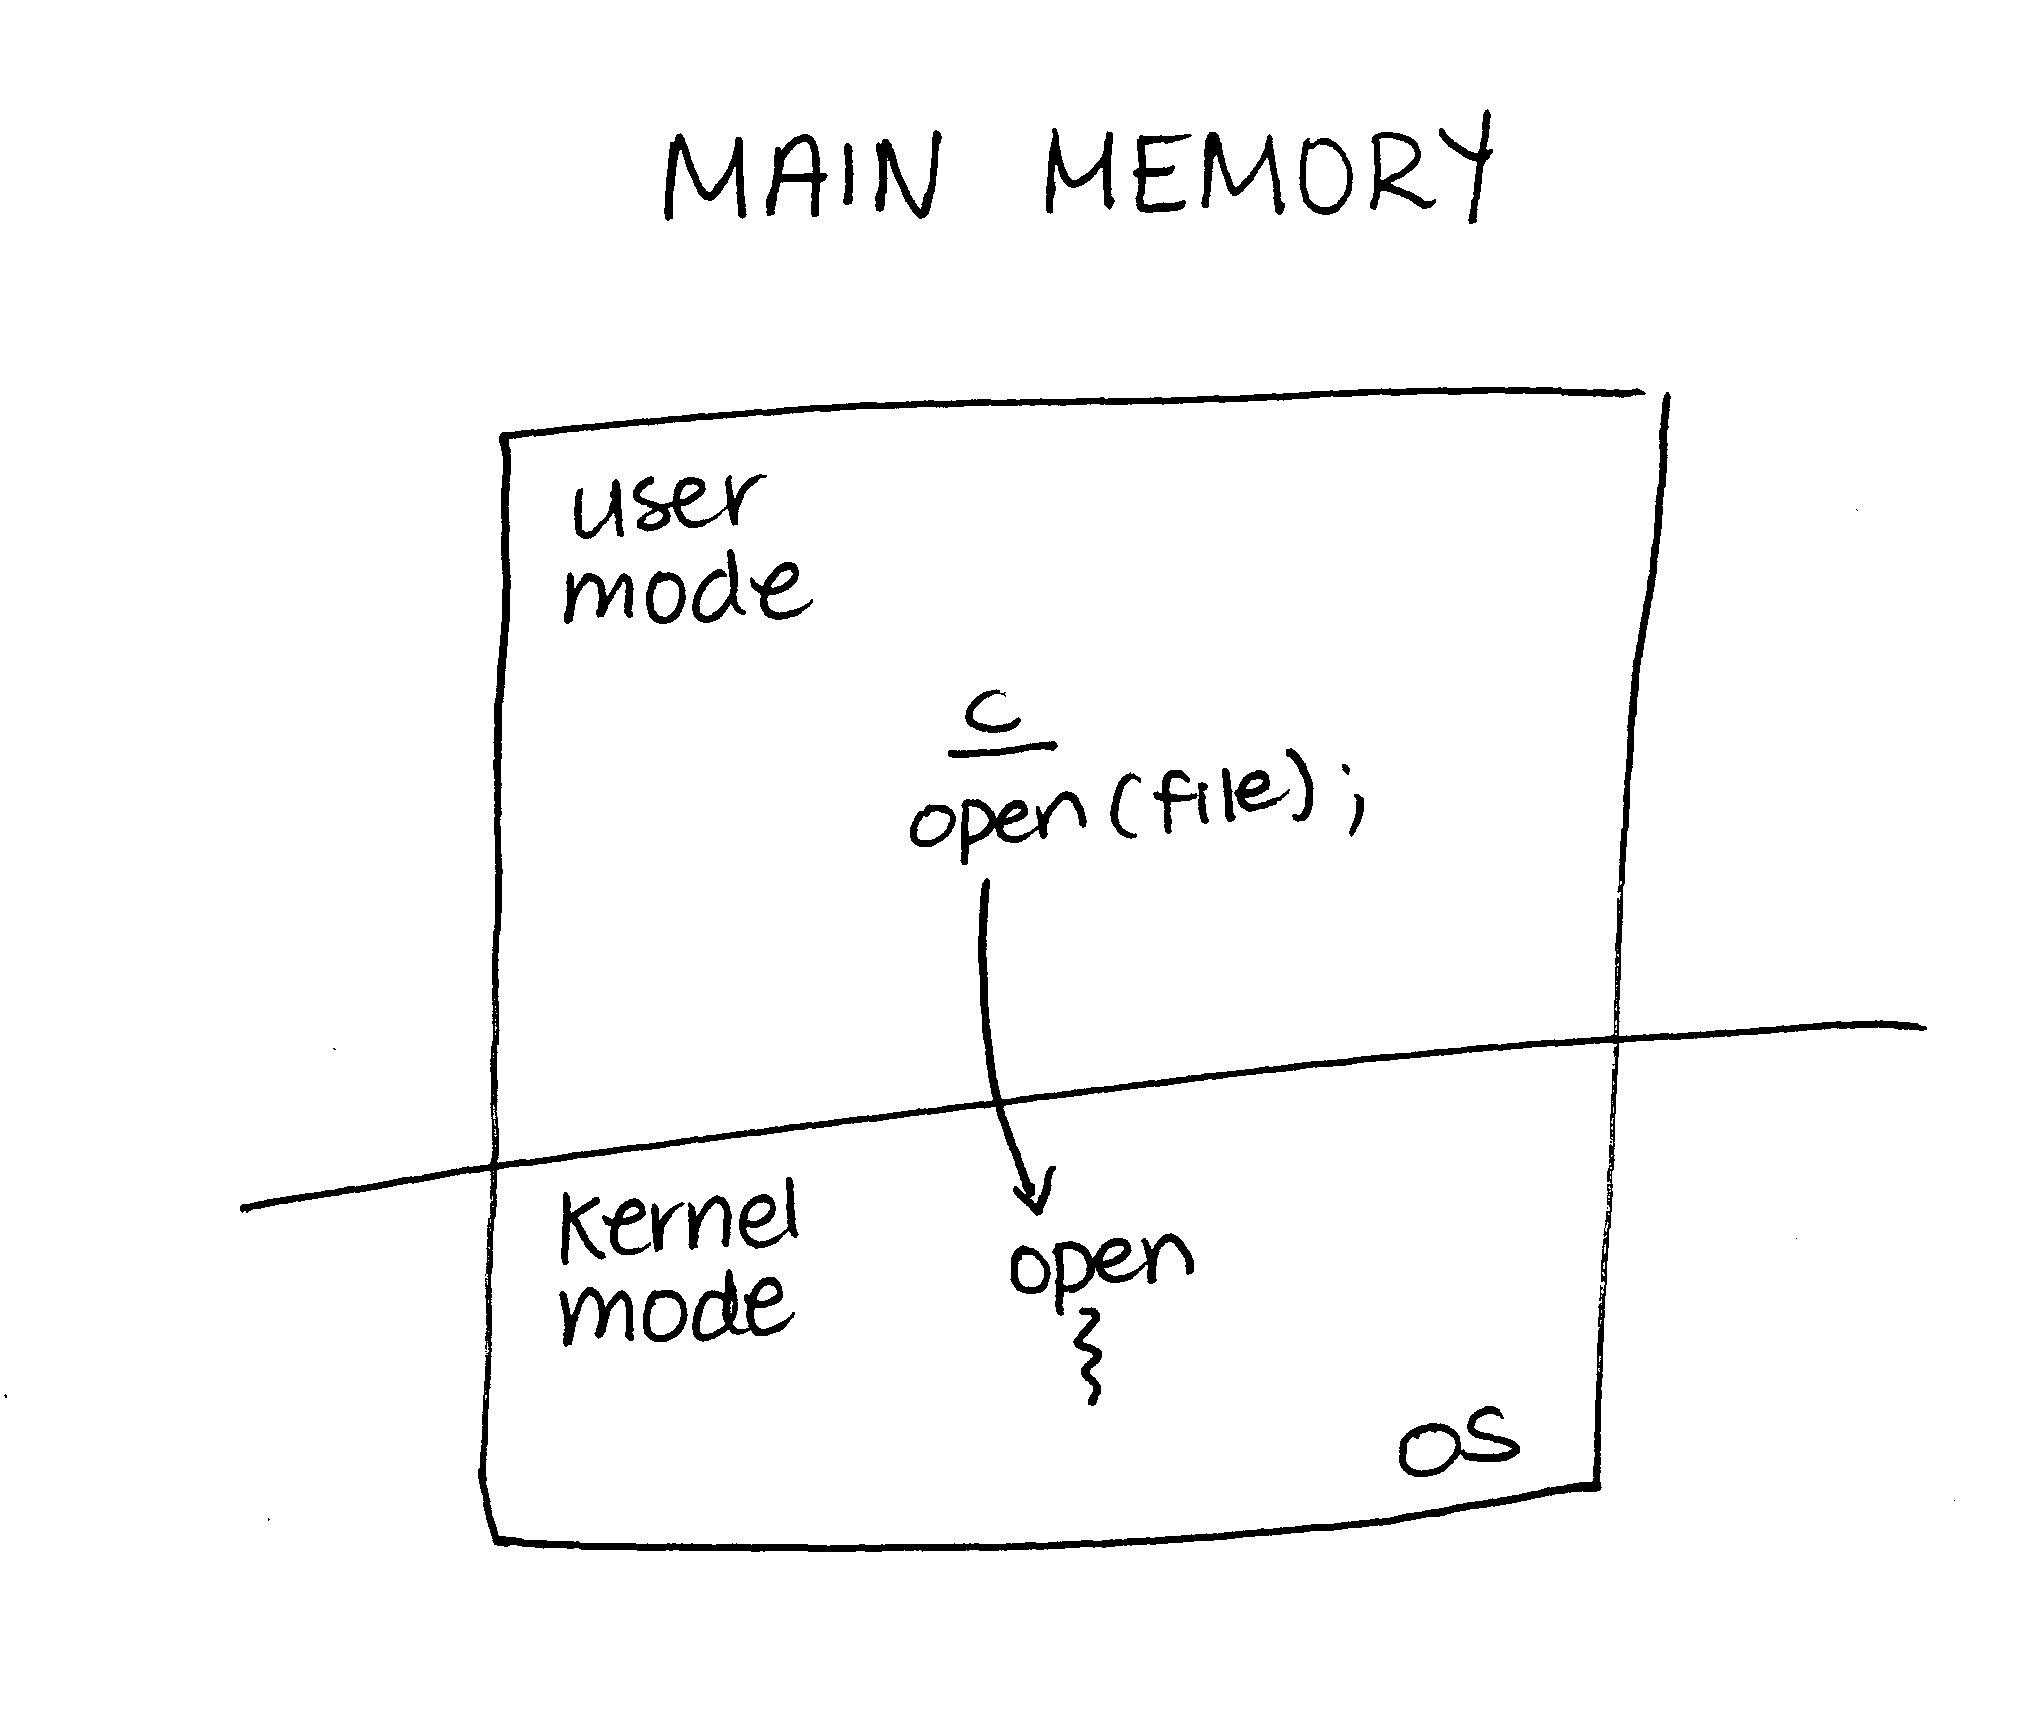 MAIN MEMORY
user
mode
c
open (file) ;
kernel
mode
open
}
OS